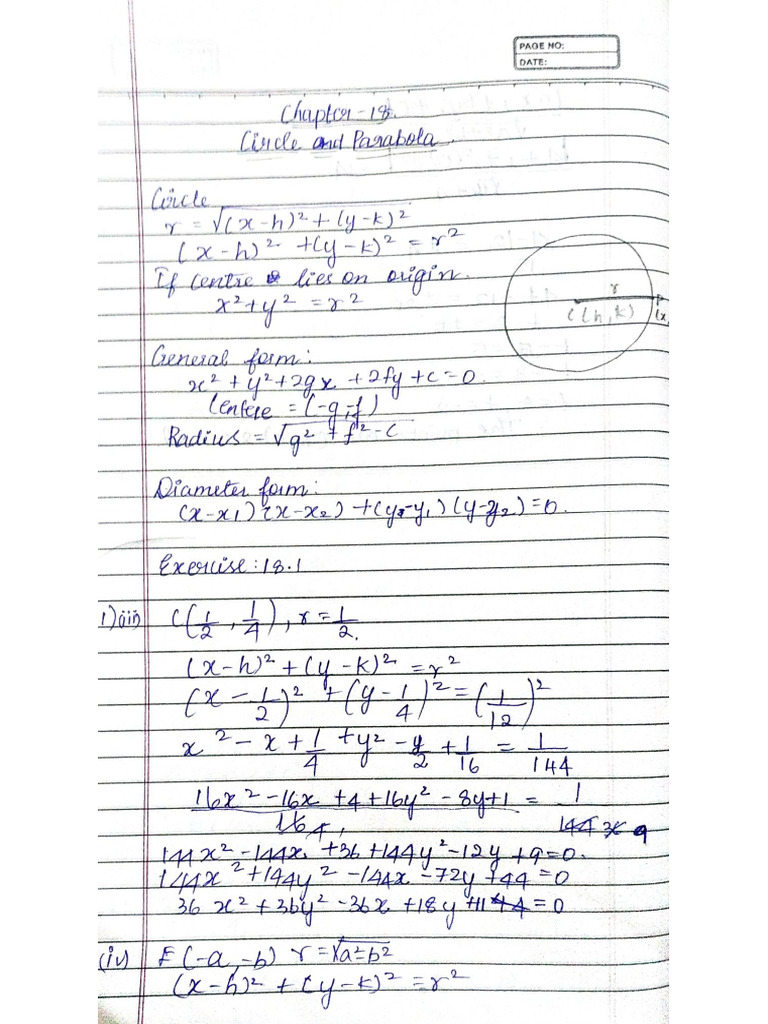 PAGE NO:
DATE:
Chapter-18.
Circle and Parabola.
Circle
r = √(x-h)² + (y-k)²
(x-h)² + (y-k)² = r²
If centre lies on origin.
x² + y² = r²
r
C(h,k)
P
(x,
General form:
x² + y² + 2gx + 2fy + c = 0.
Centre = (-g,-f)
Radius = √g² + f² - c
Diameter form:
(x-x₁)(x-x₂) + (y-y₁)(y-y₂) = 0.
Exercise: 18.1
1)(iii) C(1/2, 1/4), r = 1/2.
(x-h)² + (y-k)² = r²
(x - 1/2)² + (y - 1/4)² = (1/12)²
x² - x + 1/4 + y² - y/2 + 1/16 = 1/144
16x² - 16x + 4 + 16y² - 8y + 1 / 16 = 1 / 144 9
144x² - 144x + 36 + 144y² - 12y + 9 = 0.
144x² + 144y² - 144x - 72y + 44 = 0
36x² + 36y² - 36x + 18y + 11 = 0
(iv) (-a, -b) r = √a²-b²
(x-h)² + (y-k)² = r²